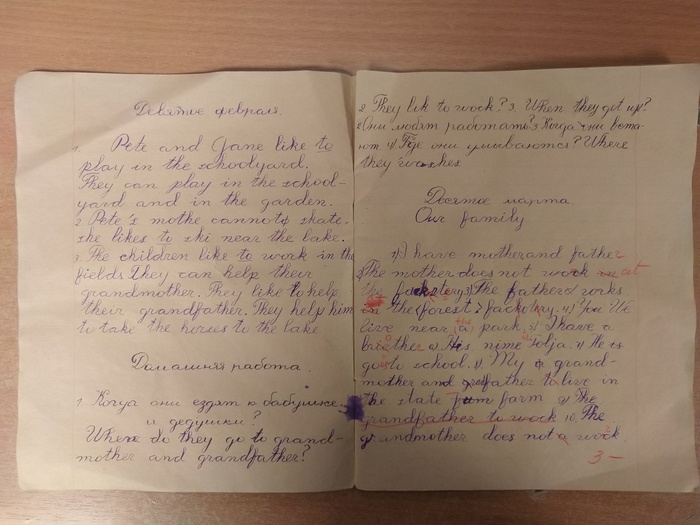 Девятое февраля.
1. Pete and Jane like to
play in the schoolyard.
They can play in the school-
yard and in the garden.
2 Pete's mothe cannot skate.
she likes to ski near the lake.
3 The children like to work in the
fields. They can help their
grandmother. They like to help
their grandfather. They help him
to take the horses to the lake
Домашняя работа.
1 Когда они ездят к бабушке
и дедушки?
When do they go to grand-
mother and grandfather?
2 They lik to wock? 3. When they got up?
2 Они любят работать? 3 Когда они вста-
ют 4) Где они умываются? Where
they washes
Десятое марта
Our family
1) I have mother and father
2) The mother does not work
the factory 3) The father works
in the forest factory. 4) You We
live near a park 5) I have a
brother 6) His nime Tolja. 7) He is
go to school. 8) My grand-
mother and grefather to live in
the state farm 9) The
grandfather to wock 10. The
grandmother does not a wock
3-